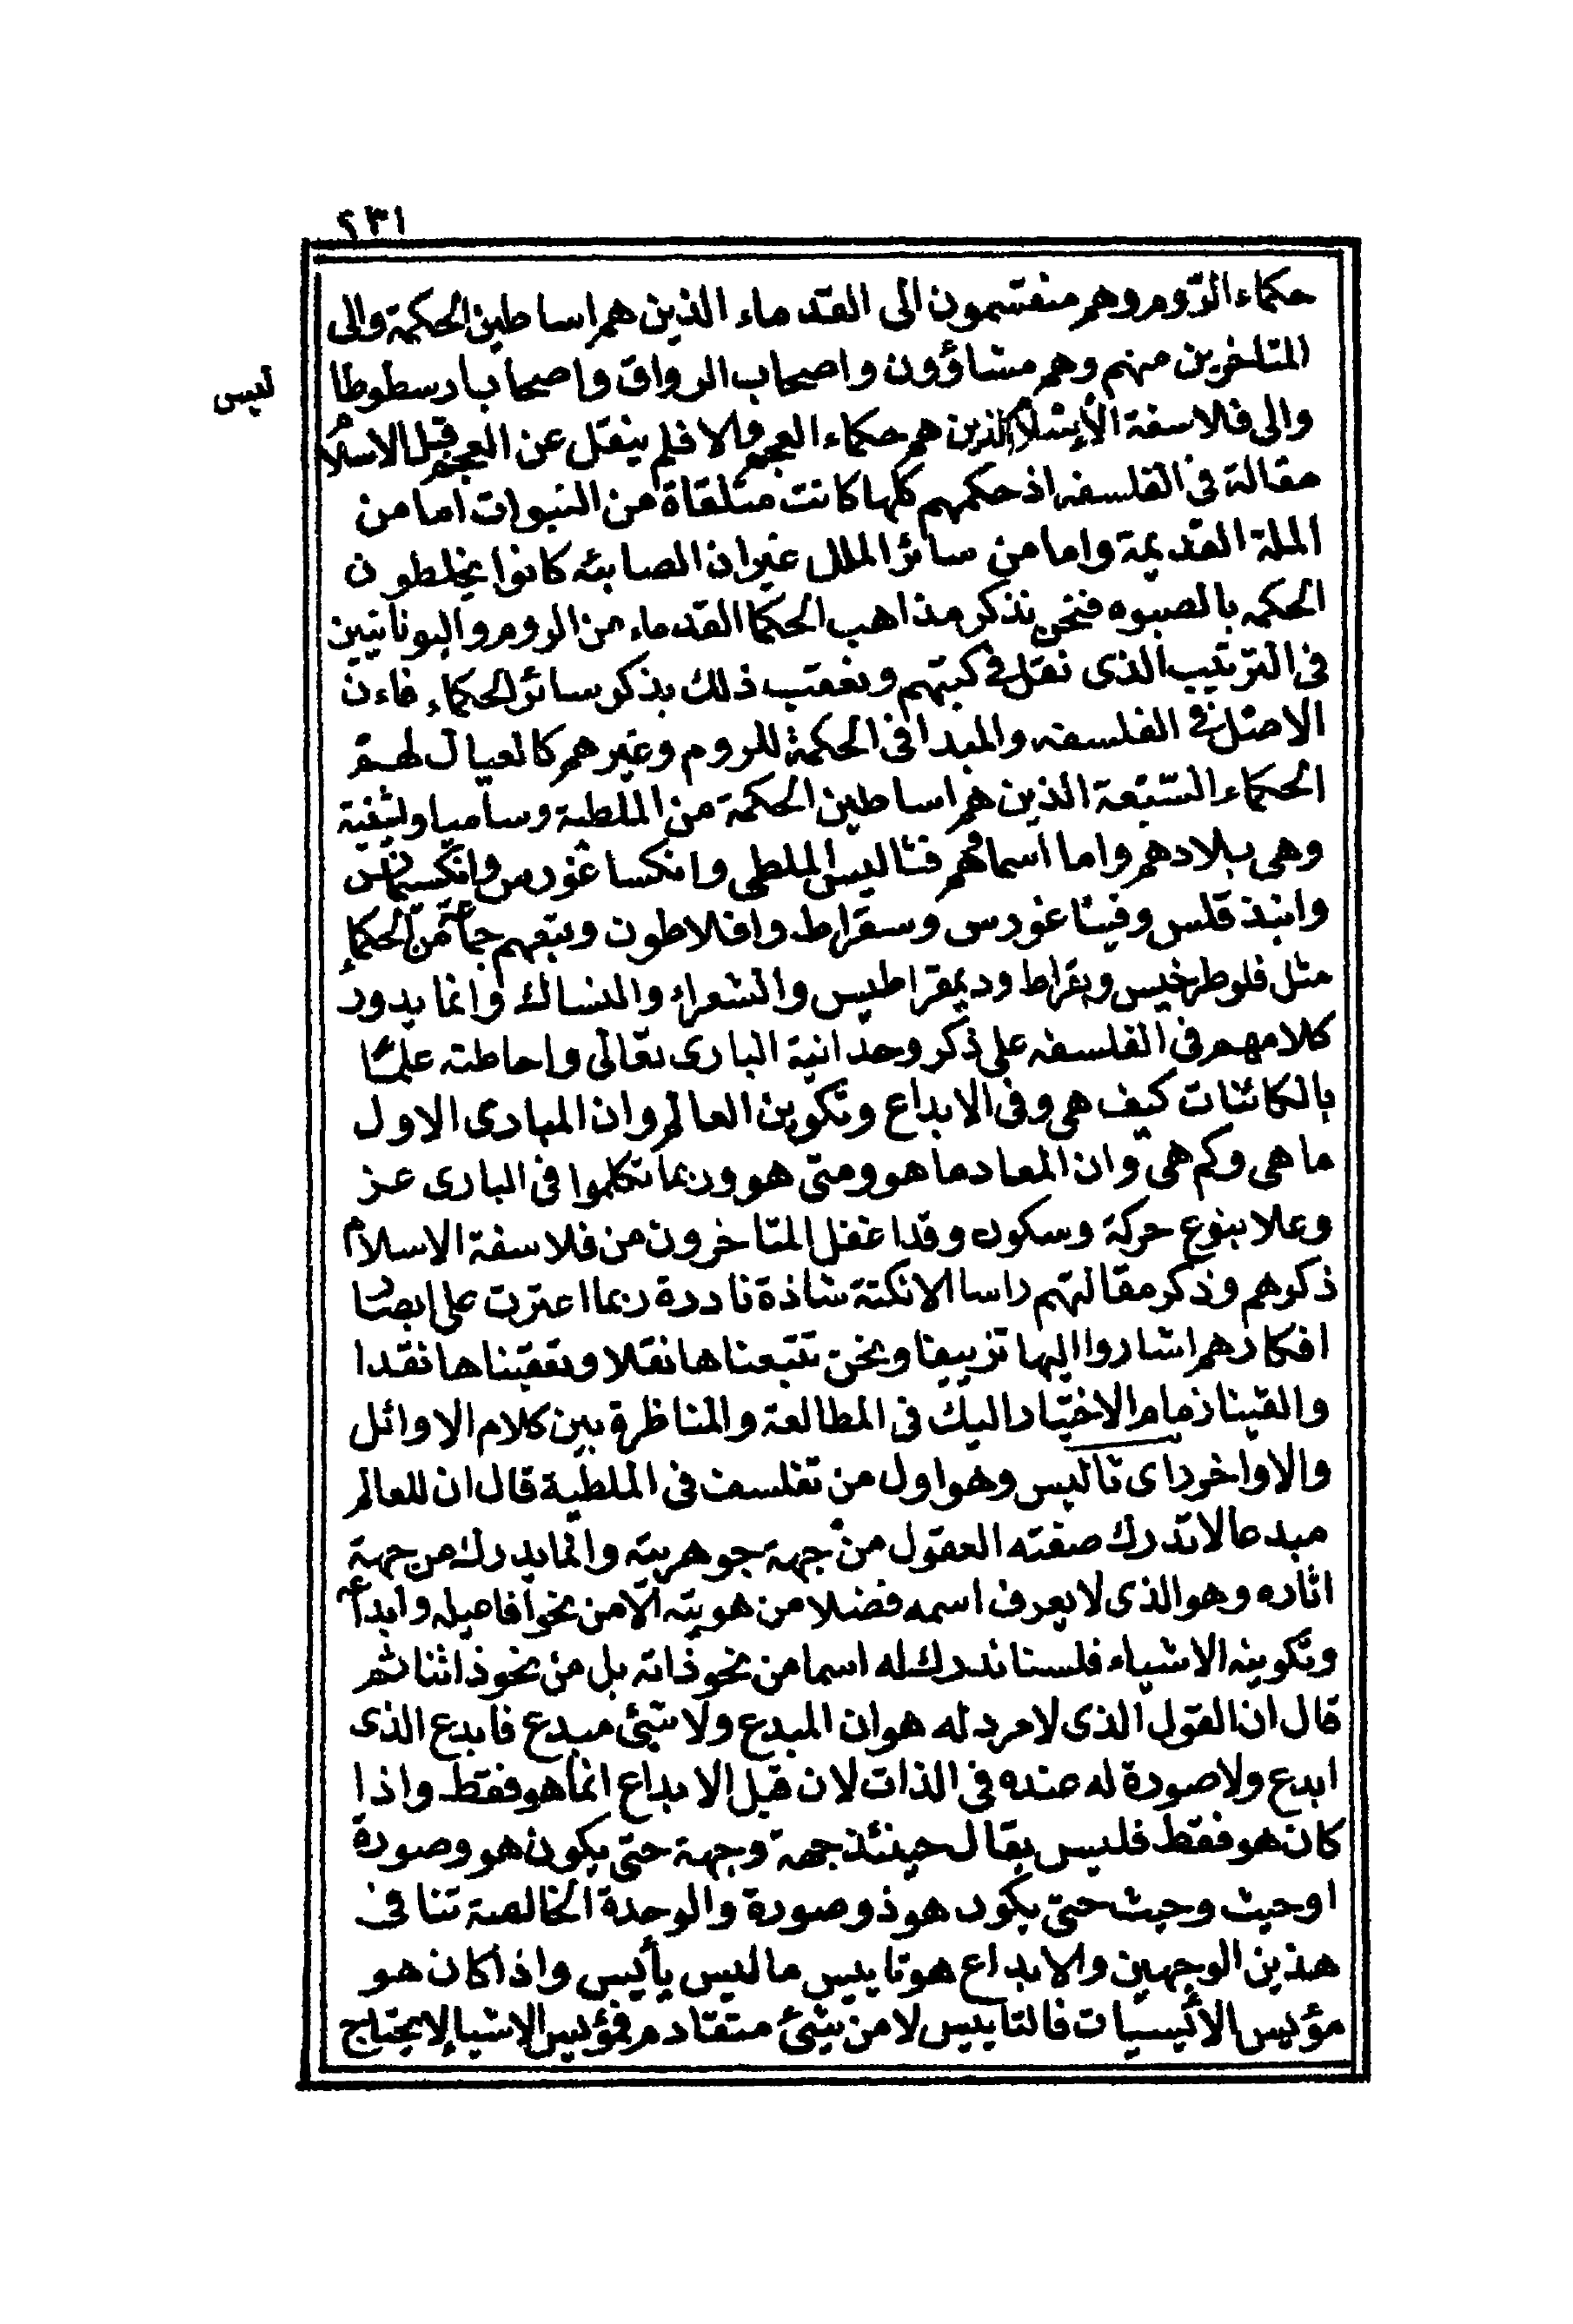 ٢٣١
حكماء الرّوم وهم منقسمون الى القدماء الذين هم اساطين الحكمة والى
المتاخرين منهم وهم مشاؤون واصحاب الرواق واصحاب ارسطوطا
ليس
والى فلاسفة الإسلام الذين هم حكماء العجم والا فلم ينقل عن العجم قبل الاسلام
مقالة في الفلسفه اذ حكمهم كلها كانت متلقاة من النبوات اما من
الملة القديمة واما من سائر الملل غير ان الصابئه كانوا يخلطون
الحكمه بالصبوه فنحن نذكر مذاهب الحكما القدماء من الروم واليونانيين
في الترتيب الذى نقل في كبتهم ونعقب ذلك بذكر سائر الحكماء فاءن
الاصل في الفلسفه والمبدا في الحكمة للروم وغيرهم كالعيال لهم
الحكماء السّبعة الذين هم اساطين الحكمة من الملطية وساميا واثينة
وهى بلادهم واما اسماؤهم فثاليس الملطى وانكساغورس وانكسيمانس
وابنذقلس وفيثاغورس وسقراط وافلاطون وتبعهم جماعة من الحكماء
مثل فلوطرخيس وبقراط وديمقراطيس والشعراء والنساك وانما يدور
كلامهم في الفلسفه على ذكر وحدانية البارى تعالى واحاطته علمًا
بالكائنات كيف هى وفي الابداع وتكوين العالم وان المبادى الاول
ما هى وكم هى وان المعاد ما هو ومتى هو وربما تكلموا في البارى عز
وعلا بنوع حركة وسكون وقد اغفل المتاخرون من فلاسفة الاسلام
ذكرهم وذكر مقالتهم راسا الا نكتة شاذة نادرة ربما اعترت على ابصار
افكارهم اشاروا اليها تزييفا ونحن تتبعناها نقلا وتعقبناها نقدا
والقينا زمام الاختيار اليك في المطالعة والمناظرة بين كلام الاوائل
والاواخر راى تاليس وهو اول من تفلسف في الملطية قال ان للعالم
مبدعا لا تدرك صفته العقول من جهة جوهريته وانما يدرك من جهة
اثاره وهو الذى لا يعرف اسمه فضلا من هويته الّا من نحو افاعيله وابداعه
وتكوينه الاشياء فلسنا ندرك له اسما من نحو ذاته بل من نحو ذاتنا ثم
قال ان القول الذى لا مرد له هو ان المبدع ولا شئ مبدع فابدع الذى
ابدع ولا صورة له عنده في الذات لان قبل الابداع انما هو فقط واذا
كان هو فقط فليس يقال حينئذ جهة وجهة حتى يكون هو وصورة
او حيث وحيث حتى يكون هو ذو صورة والوحدة الخالصة تنافى
هذين الوجهين والابداع هو تاييس ما ليس بأيس واذا كان هو
مؤيس الأيسيات فالتاييس لا من شئ متقادم فمؤيس الاشياء لا يحتاج